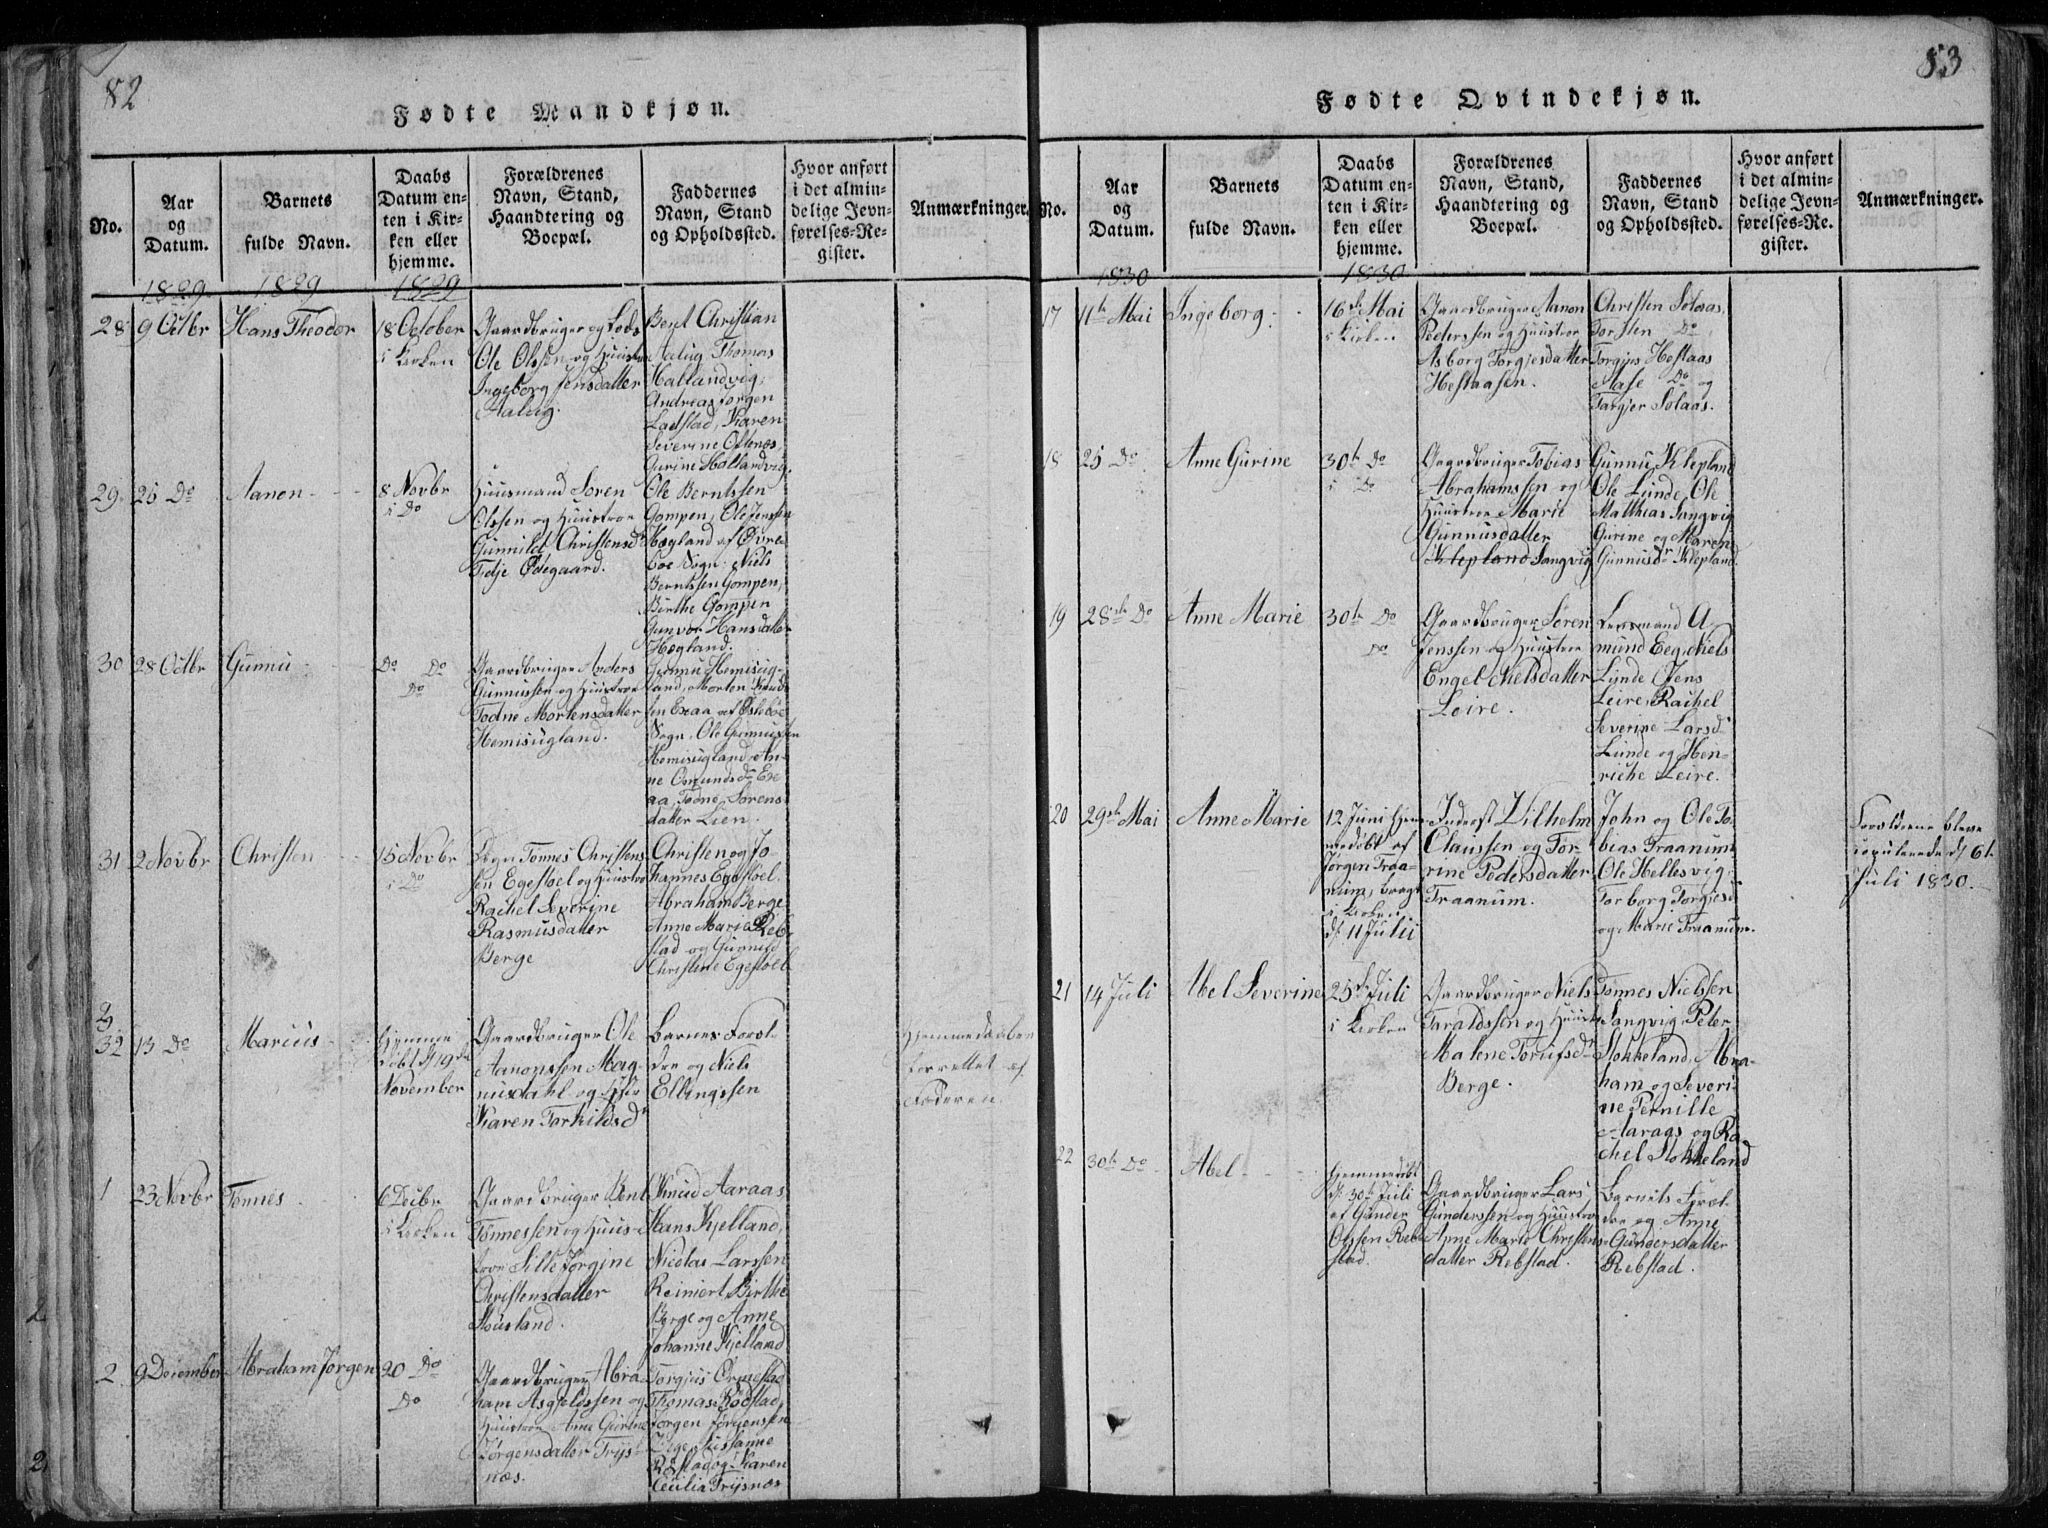 82
Fødte Mandkjøn.
No.
Aar
og
Datum.
Barnets
fulde Navn.
Daabs
Datum en-
ten i Kir-
ken eller
hjemme.
Forældrenes
Navn, Stand,
Haandtering og
Boepæl.
Faddernes
Navn, Stand
og Opholdssted.
Hvor anført
i det almin-
delige Jevn-
førelses-Re-
gister.
Anmærkninger.
1829.
1829
1829
28
9 Octbr
Hans Theodor
18 October
i Kirken
Gaardbruger og Lods
Ole Olssen og Huustroe
Ingeborg Jensdatter
Aalug.
Bent Christian
Aalug, Thomas
Hallandvig,
Andreas Jørgen
Ladstad, Karen
Severine Ostenes,
Gurine Hollandvig.
29.
25 Do
Aanon
8 Novbr
i Do
Huusmand Søren
Olssen og Huustroe
Gunnild Christensdr
Tidje Ødegaard.
Ole Berntssen
Gompen, Ole Jenssen
Høgland af Øvre-
boe Sogn, Niels
Berntssen Gompen,
Birthe Gompen
Gunvor Hansdatter
Høgland.
30
28 Octbr
Gunnu
Do Do
Do
Gaardbruger Anders
Gunnussen og Huustroe
Todne Mortensdatter
Homisugland.
Gunnu Homisug-
land, Morten Knud-
sen Eraa af
Sogn, Ole Gunnussen
Homisugland, An-
ne Osmundsdr Er-
aa, Todne Sørens-
datter Lien.
31
2 Novbr
Christen
15 Novbr
i Do
Tønnes Christens-
sen Egestoel og Huustroe
Rachel Severine
Rasmusdatter
Berge
Christen og Jo-
hannes Egestoel.
Abraham Berge
Anne Marie Reb-
stad og Gunnild
Christine Egestoel
32
13 Do
Marcus
Hjemme
døbt d 19de
November
Gaardbruger Ole
Aanonssen Mag-
nusdahl og Hstr
Karen Torkildsdr
Barnets Foræl-
dre og Niels
Ellingssen
Hjemmedaaben
forrettet af
Faderen.
1
23 Novbr
Tønnes
6 Decbr
i Kirken
Gaardbruger Bent
Tønnessen og Huus-
troe Sille Jørgine
Christensdatter
Housland.
Knud Aaraas
Hans Kjelland,
Nicolai Larssen
Reiniert, Birthe
Berge og Anne
Johanne Kjelland
2
9 December
Abraham Jørgen
20 Do
Do
Gaardbruger Abra-
ham Asgieldssen og
Huustroe Anne Gurine
Jørgensdatter Tryss-
næs.
Torgius Ormestad
Thomas Rødstad,
Jørgen Jørgensen
Sussanne
Karen
Cecilia Trysnæs
83
Fødte Qvindekjøn.
No.
Aar
og
Datum.
Barnets
fulde Navn.
Daabs
Datum en-
ten i Kir-
ken eller
hjemme.
Forældrenes
Navn, Stand,
Haandtering og
Boepæl.
Faddernes
Navn, Stand
og Opholdssted.
Hvor anført
i det almin-
delige Jevn-
førelses-Re-
gister.
Anmærkninger.
1830
1830
17
11te Mai
Ingeborg
16de Mai
i Kirken
Gaardbruger Aanon
Pederssen og Huustroe
Asborg Torgiesdatter
Hestaasen.
Christen Solaas,
Torsten Do
Torgjus Hestaas
Aase Do og
Targjer Solaas.
18
25 Do
Anne Gurine
30te Do
i Do
Gaardbruger Tobias
Abrahamssen og
Huustroe Marie
Gunnusdatter
Klepland Langvig
Gunnu Klepland
Ole Lunde, Ole
Matthias Langvig
Gurine og Maren
Gunnusdr Klepland.
19
28de Do
Anne Marie
30te Do
Do
Gaardbruger Søren
Jenssen og Huustroe
Engel Nielsdatter
Leire.
Lensmand A-
mund Eeg, Niels
Lunde, Jens
Leire, Rachel
Severine Larsdr
Lunde og Hen-
riche Leire.
20
29de Mai
Anne Marie
12 Juni hjem-
medøbt af
Jørgen Traa-
num, bragt
i Kirken
d. 11 Julii
Inderst Vilhelm
Claussen og Tor-
rine Pedersdatter
Traanum.
John og Ole To-
bias Traanum
Ole Hellesvig,
Torborg Torgiesdr
og Marie Traanum.
Forældrene bleve
copulerede d. 6te
Juli 1830.
21
14 Juli
Abel Severine
25de Juli
i Kirken
Gaardbruger Niels
Taraldssen og Huustr
Malene Torufsdr
Berge.
Tønnes Nielssen
Langvig, Peter
Stokkeland, Abra-
ham og Severi-
ne Pernille
Aarags og Ra-
chel Stokkeland
22
30te Do
Abel
Hjemmedøbt
d. 30te Juli
af Gunder
Olssen Reb-
stad.
Gaardbruger Lars
Gunderssen og Huustroe
Anne Marie Christens-
datter Rebstad.
Barnets Foræl-
dre og Anne
Gundersdatter
Rebstad.